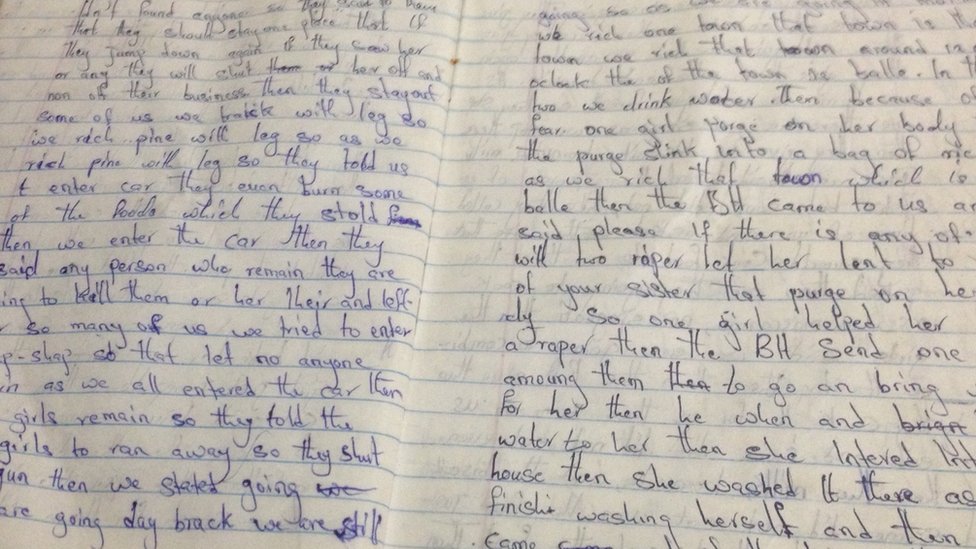 found anyone so they said to them
that they should stay one place that if
they jump down again if they saw her
or any they will shut them or her off and
non of their business then they stayout
some of us we with leg so
we rich pine will leg so as we
rich pine will leg so they told us
t enter car they even burn some
of the foods which they stold
then we enter the car then they
said any person who remain they are
ing to kill them or her their and left
so many of us we tried to enter
p-shap so that let no anyone
in as we all entered the car then
girls remain so they told the
girls to ran away so they shut
gun then we stated going we
are going day brack we are still
going so as we are going in
we rich one town that town is the
town we rich that town around
oclock the of the town is balle. In th
two we drink water. Then because of
fear one girl purge on her body
the purge stink into a bag of ric
as we rich that town which is
balle then the BH came to us an
said please if there is any of
with two raper let her lent to
of your sister that purge on he
dy so one girl helped her
a raper then the BH send one
amoung them then to go an bring
for her then he when and bright
water to her then she Intered Int
house then she washed It there as
finish washing herself and then
came